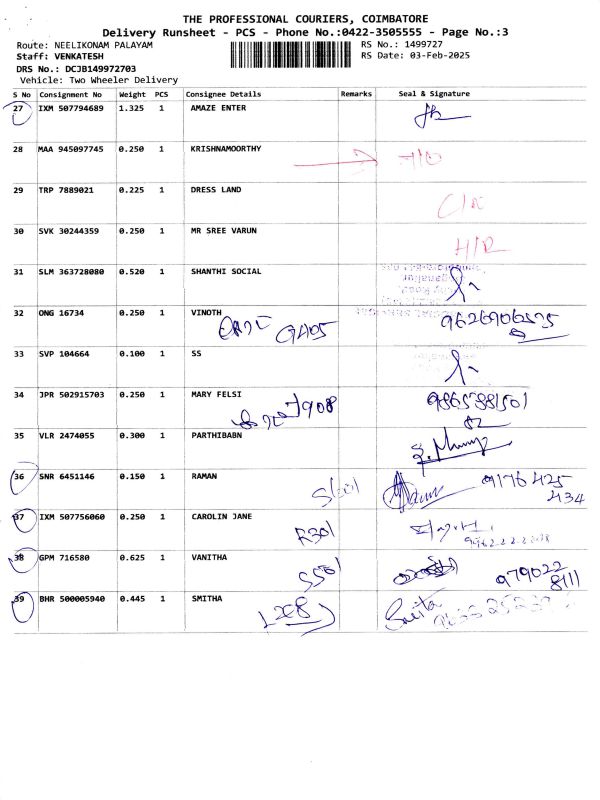 THE PROFESSIONAL COURIERS, COIMBATORE
Delivery Runsheet - PCS - Phone No.:0422-3505555 - Page No.:3
Route: NEELIKONAM PALAYAM
RS No.: 1499727
Staff: VENKATESH
RS Date: 03-Feb-2025
DRS No.: DCJB149972703
Vehicle: Two Wheeler Delivery
S No Consignment No Weight PCS Consignee Details Remarks Seal & Signature
27 IXM 507794689 1.325 1 AMAZE ENTER
28 MAA 945097745 0.250 1 KRISHNAMOORTHY
29 TRP 7889021 0.225 1 DRESS LAND
30 SVK 30244359 0.250 1 MR SREE VARUN
H/R
31 SLM 363728080 0.520 1 SHANTHI SOCIAL
32 ONG 16734 0.250 1 VINOTH
G405 9626906535
33 SVP 104664 0.100 1 SS
34 JPR 502915703 0.250 1 MARY FELSI
7908 9865381501
35 VLR 2474055 0.300 1 PARTHIBABN
36 SNR 6451146 0.150 1 RAMAN
9176425
434
37 IXM 507756060 0.250 1 CAROLIN JANE
R301
38 GPM 716580 0.625 1 VANITHA
S501 979022
8111
39 BHR 500005940 0.445 1 SMITHA
Smita